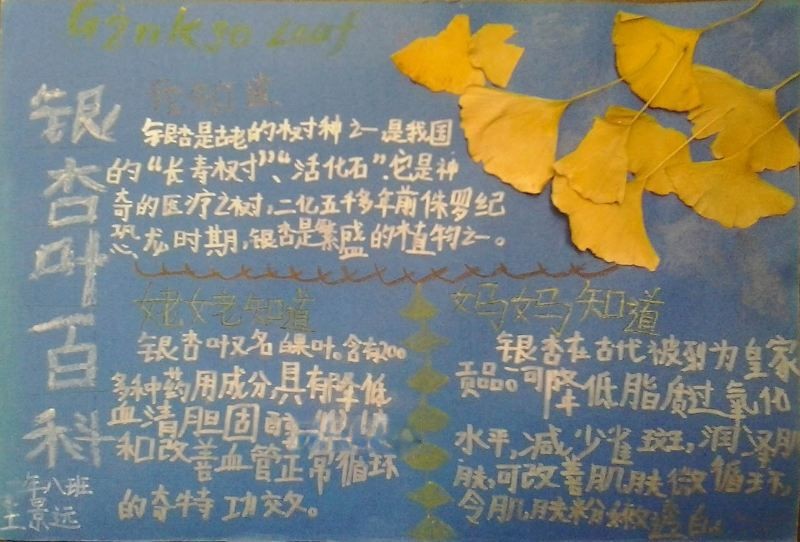 Ginkgo Leaf
银杏叶百科
我知道
银杏是古老的树种之一是我国
的“长青树”、“活化石”.它是神
奇的医疗之树,二亿五千多年前侏罗纪
恐龙时期,银杏是繁盛的植物之一。
姥姥知道
银杏叶又名白果叶。含有200
多种药用成分具有降低
血清胆固醇
和改善血管正常循环
的奇特功效。
妈妈知道
银杏在古代被列为皇家
贡品。可降低脂质过氧化
水平,减少雀斑,润泽肌
肤,可改善肌肤微循环,
令肌肤粉嫩透白。
年八班
王景远